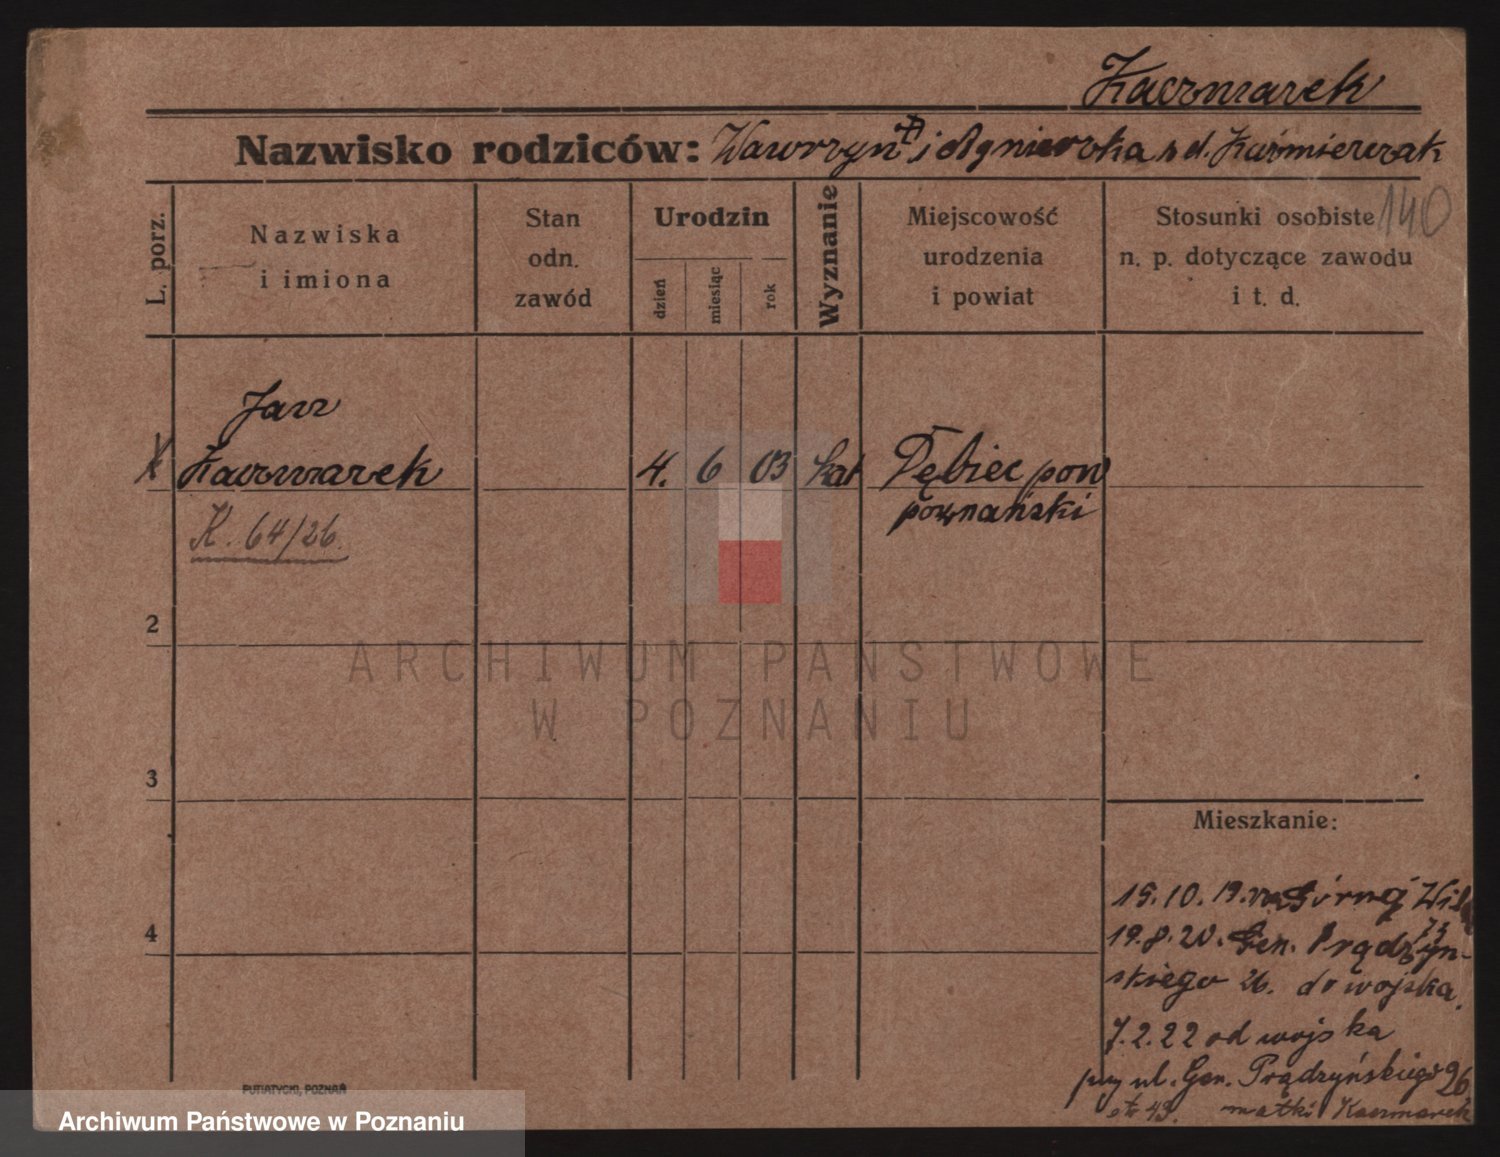 Kaczmarek
Nazwisko rodziców: Wawrzyn i Agnieszka z d. Kaźmierczak
140
L. porz.
Nazwiska
i imiona
Stan
odn.
zawód
Urodzin
dzień
miesiąc
rok
Wyznanie
Miejscowość
urodzenia
i powiat
Stosunki osobiste
n. p. dotyczące zawodu
i t. d.
Jan
Kaczmarek
4. 6 03 kat Dębiec pow
poznański
K. 64/26.
2
3
4
ARCHIWUM PAŃSTWOWE
W POZNANIU
Mieszkanie:
15.10.19. Górnej Wil
19.8.20. Gen. Prądzyn-
skiego 26. do wojska.
7.2.22 od wojska
przy ul. Gen. Prądzyńskiego 26
matki Kaczmarek
PUTIATYCKI, POZNAŃ
Archiwum Państwowe w Poznaniu